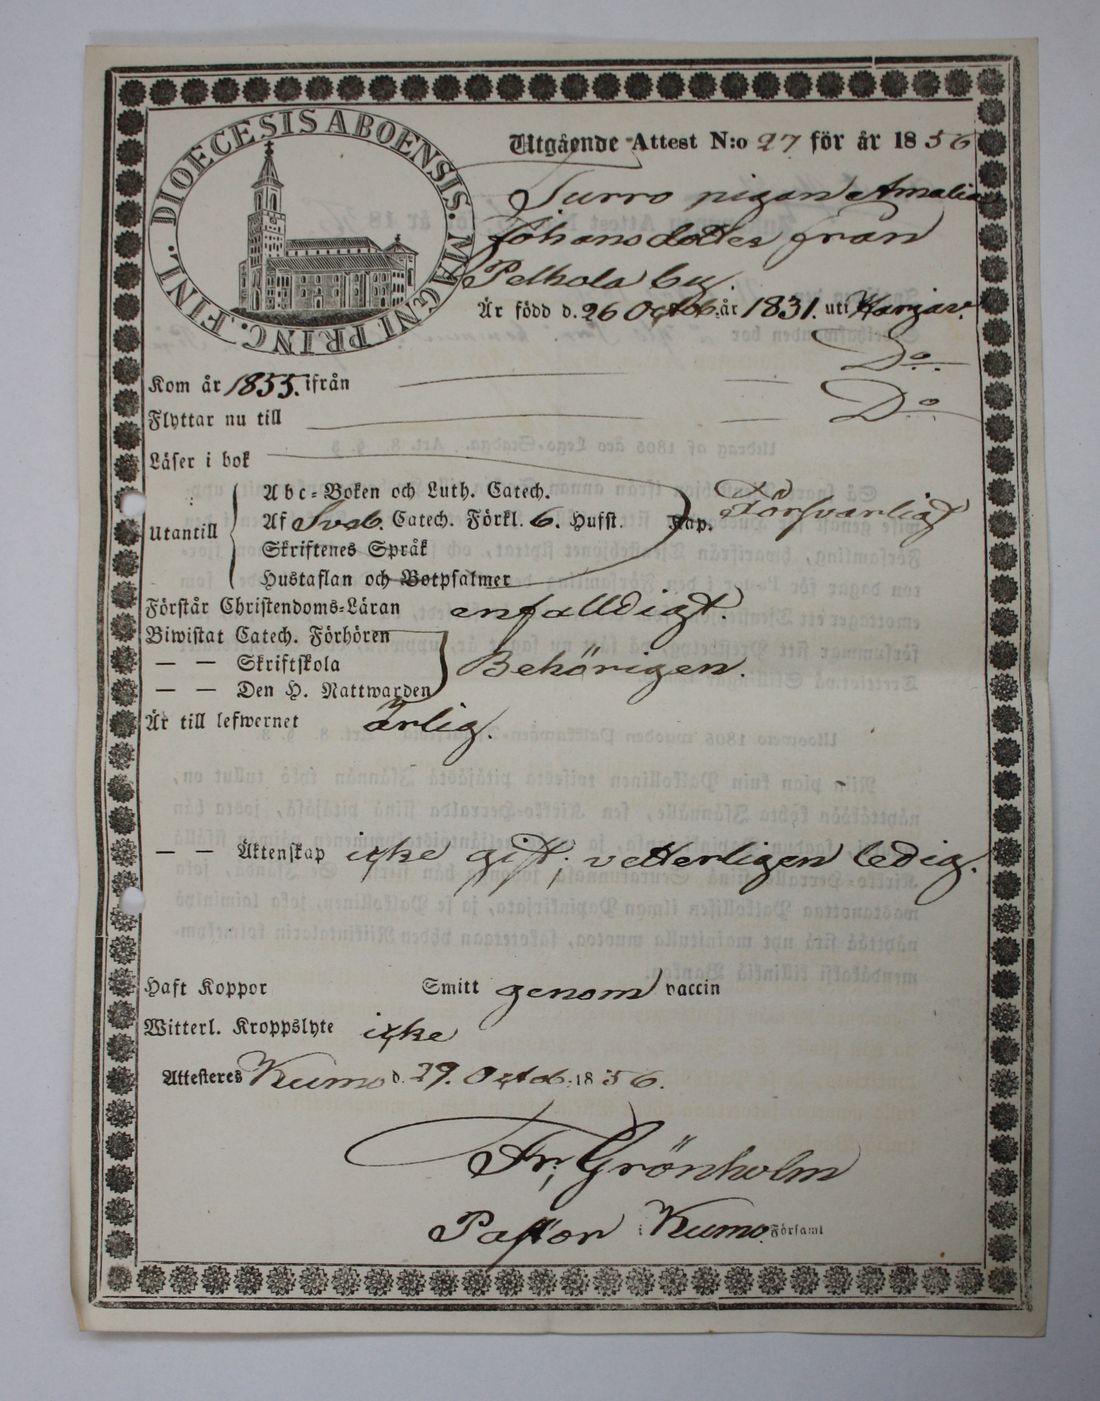 DIOECESIS ABOENSIS. MAGNI PRINC. FINL.
Utgående Attest N:o 27 för år 1856
Turro pigan Amalia
Johansdotter från
Pelhola by.
Är född d. 26 Octob. år 1831. uti Karjav.
Kom år 1855. ifrån Do
Flyttar nu till Do
Läser i bok
Utantill
Abc-Boken och Luth. Catech.
Af Sveb. Catech. Förkl. 6. Hufst. Kap. Försvarligt
Skriftenes Språk
Hustaflan och Botpsalmer
Förstår Christendoms-Läran enfalldigt.
Biwistat Catech. Förhören
— — Skriftskola Behörigen.
— — Den H. Nattwarden
Är till lefwernet ärlig.
— — Äktenskap icke gift; vetterligen ledig.
Haft Koppor Smitt genom vaccin
Witterl. Kroppslyte icke
Attesteres Kumo d. 29. Octob. 1856.
Fr. Grönholm
Pastor i Kumo Församl